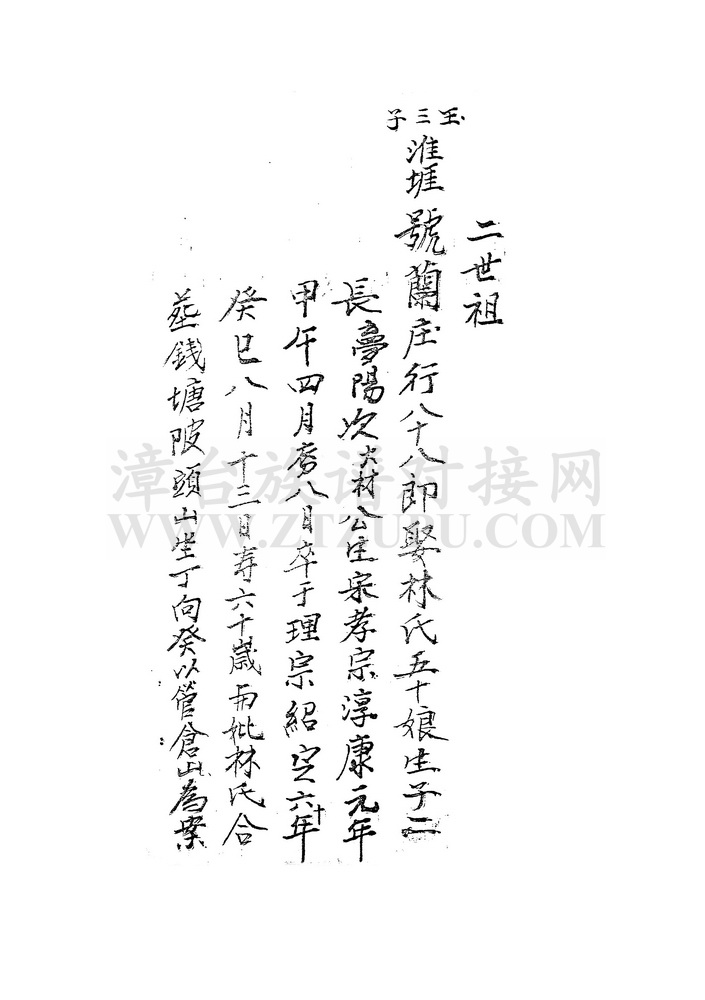 二世祖
玉三子
淮堐號蘭庄行八十八郎娶林氏五十娘生子二
長夢陽次大材公生宋孝宗淳康元年
甲午四月初八日卒于理宗紹定六十年
癸巳八月十三日寿六十歲与妣林氏合
塟錢塘陂頭山坐丁向癸以管倉山為案
漳台族谱对接网
WWW.ZTZUPU.COM